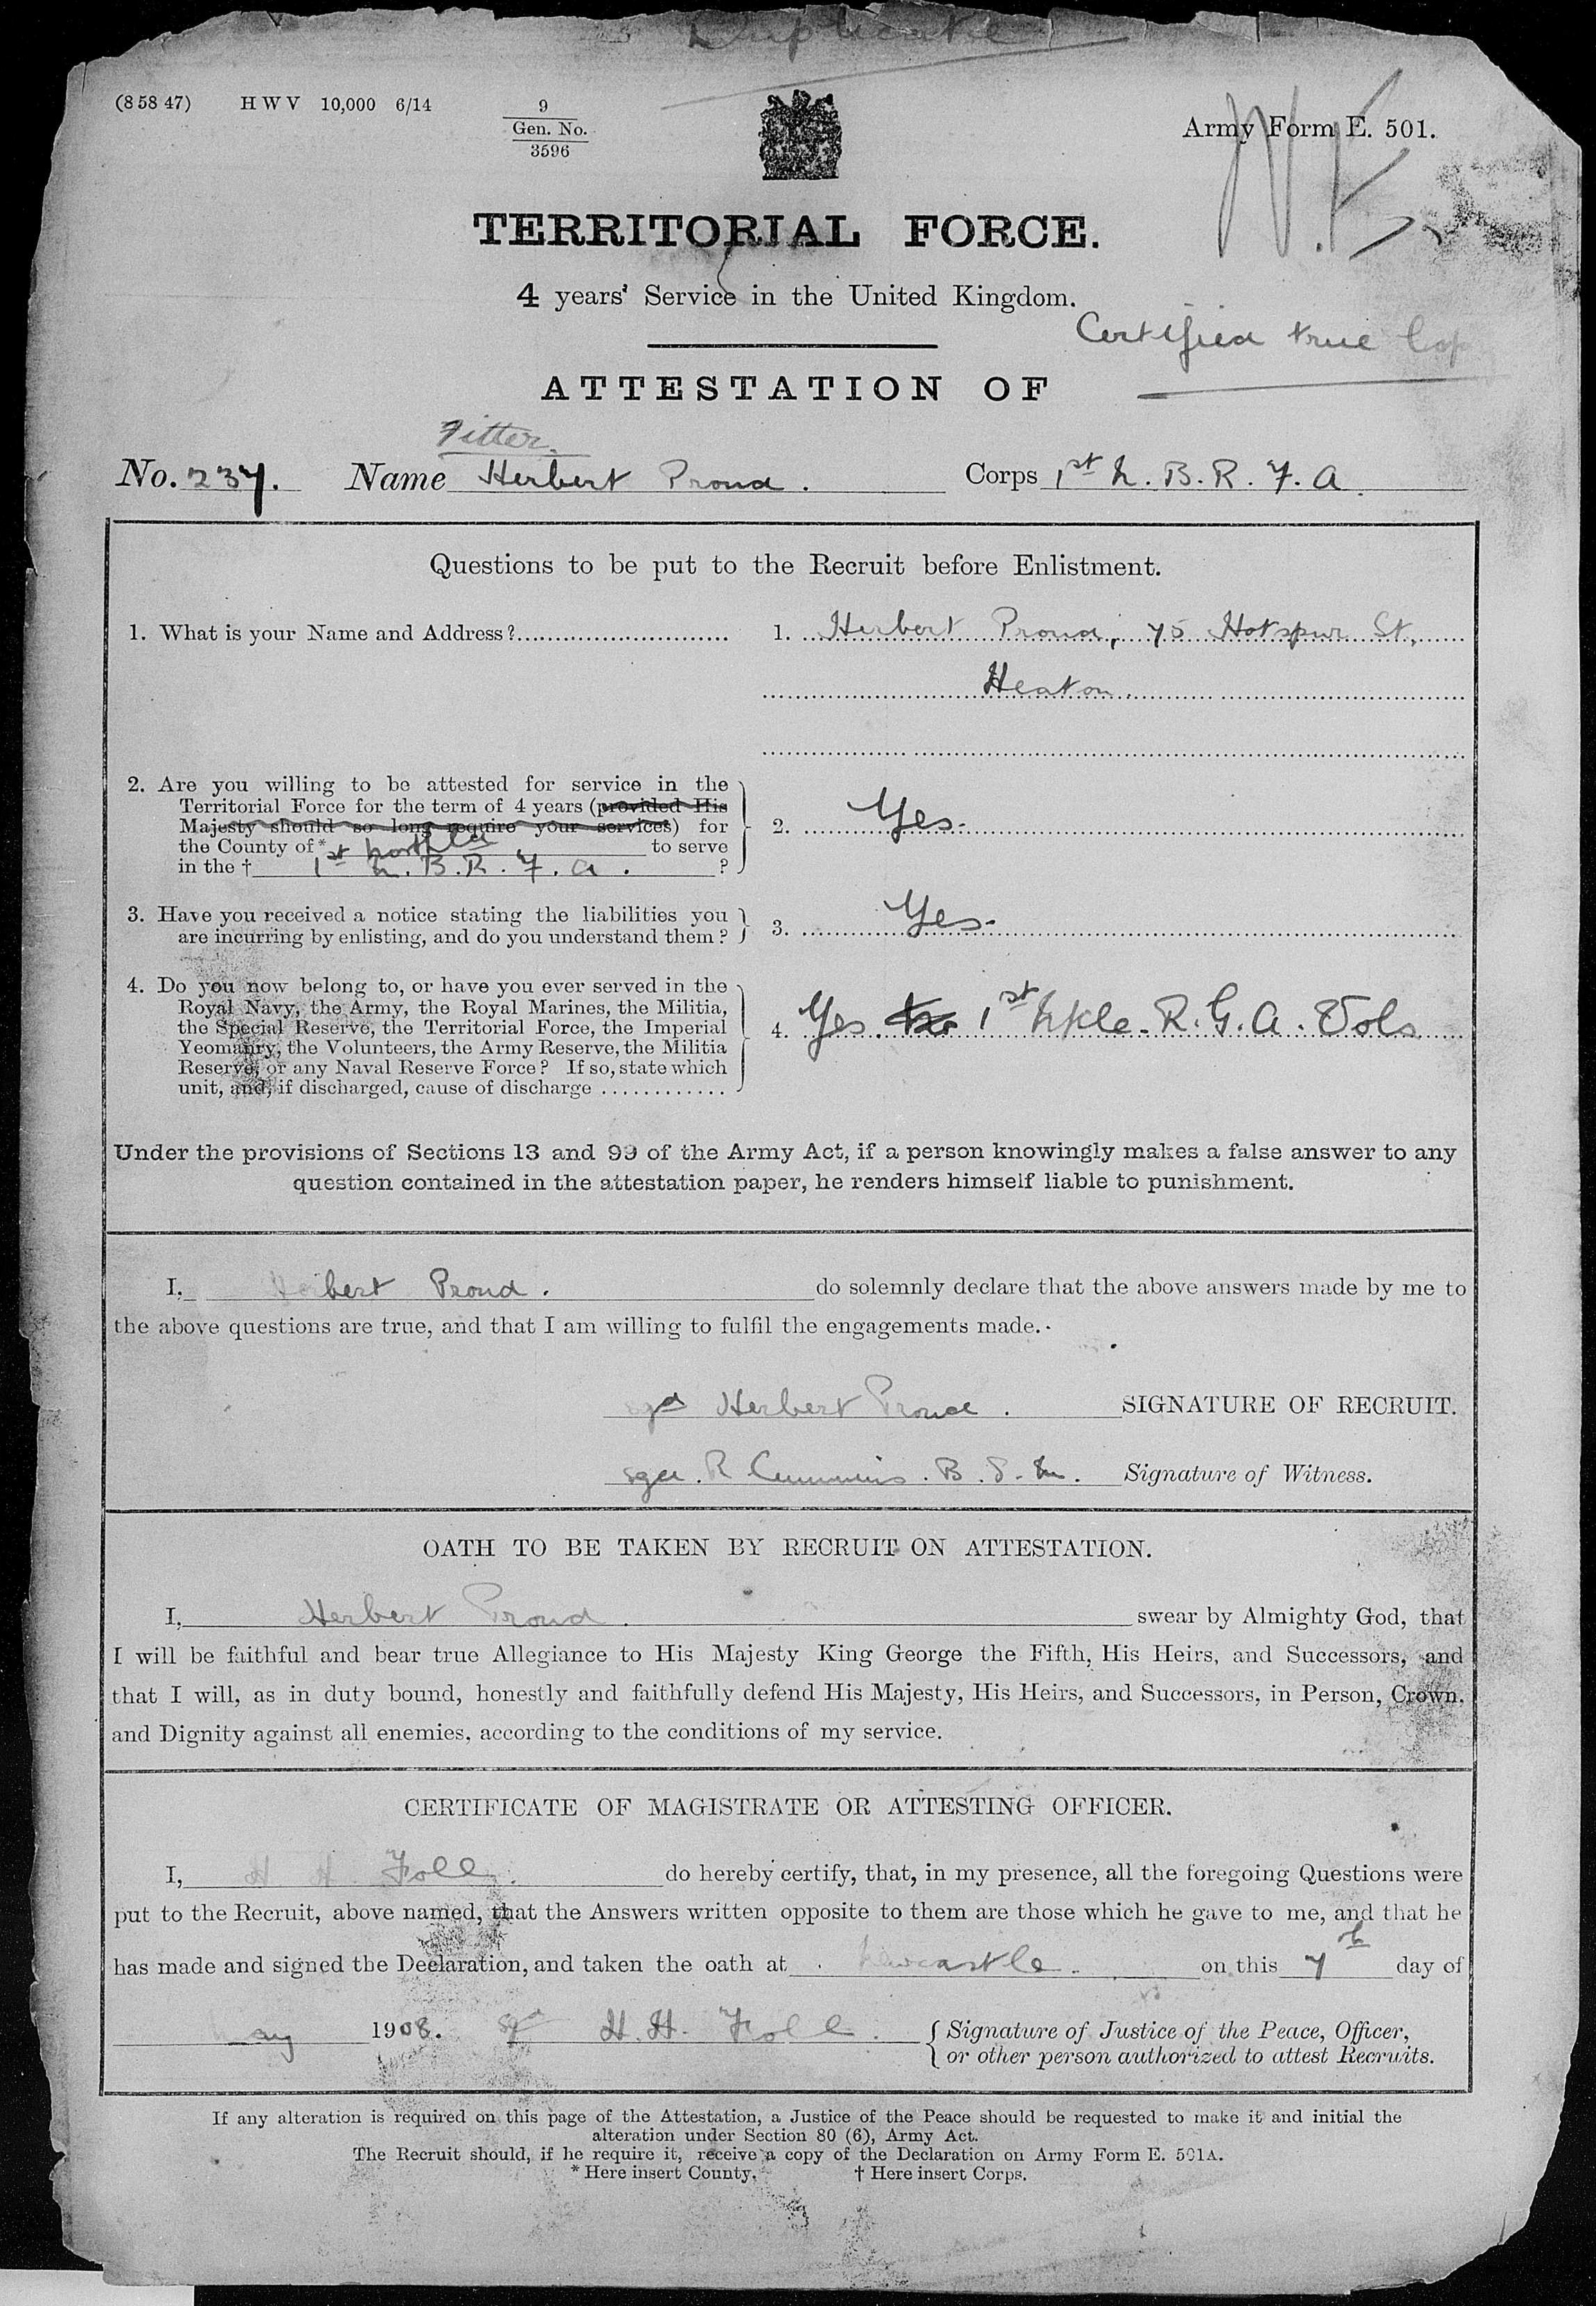 Duplicate
(8 58 47) H W V 10,000 6/14
9
Gen. No.
3596
Army Form E. 501.
TERRITORIAL FORCE.
4 years' Service in the United Kingdom.
Certified true Cop
ATTESTATION OF
Fitter.
No. 237. Name Herbert Proud. Corps 1st N. B. R. F. A.
Questions to be put to the Recruit before Enlistment.
1. What is your Name and Address? 1. Herbert Proud, 75 Hotspur St,
Heaton.
2. Are you willing to be attested for service in the
Territorial Force for the term of 4 years (provided His
Majesty should so long require your services) for
the County of * Northld to serve
in the † 1st N. B. R. F. A. ?
2. Yes.
3. Have you received a notice stating the liabilities you
are incurring by enlisting, and do you understand them?
3. Yes.
4. Do you now belong to, or have you ever served in the
Royal Navy, the Army, the Royal Marines, the Militia,
the Special Reserve, the Territorial Force, the Imperial
Yeomanry, the Volunteers, the Army Reserve, the Militia
Reserve, or any Naval Reserve Force? If so, state which
unit, and, if discharged, cause of discharge
4. Yes 1st N/cle. R. G. A. Vols
Under the provisions of Sections 13 and 99 of the Army Act, if a person knowingly makes a false answer to any
question contained in the attestation paper, he renders himself liable to punishment.
I, Herbert Proud. do solemnly declare that the above answers made by me to
the above questions are true, and that I am willing to fulfil the engagements made.
sgd Herbert Proud. SIGNATURE OF RECRUIT.
sgd. R Cummins. B. S. M. Signature of Witness.
OATH TO BE TAKEN BY RECRUIT ON ATTESTATION.
I, Herbert Proud. swear by Almighty God, that
I will be faithful and bear true Allegiance to His Majesty King George the Fifth, His Heirs, and Successors, and
that I will, as in duty bound, honestly and faithfully defend His Majesty, His Heirs, and Successors, in Person, Crown,
and Dignity against all enemies, according to the conditions of my service.
CERTIFICATE OF MAGISTRATE OR ATTESTING OFFICER.
I, H H Foll. do hereby certify, that, in my presence, all the foregoing Questions were
put to the Recruit, above named, that the Answers written opposite to them are those which he gave to me, and that he
has made and signed the Declaration, and taken the oath at Newcastle. on this 7th day of
May 1908. sgd H. H. Foll. Signature of Justice of the Peace, Officer,
or other person authorized to attest Recruits.
If any alteration is required on this page of the Attestation, a Justice of the Peace should be requested to make it and initial the
alteration under Section 80 (6), Army Act.
The Recruit should, if he require it, receive a copy of the Declaration on Army Form E. 501A.
* Here insert County. † Here insert Corps.